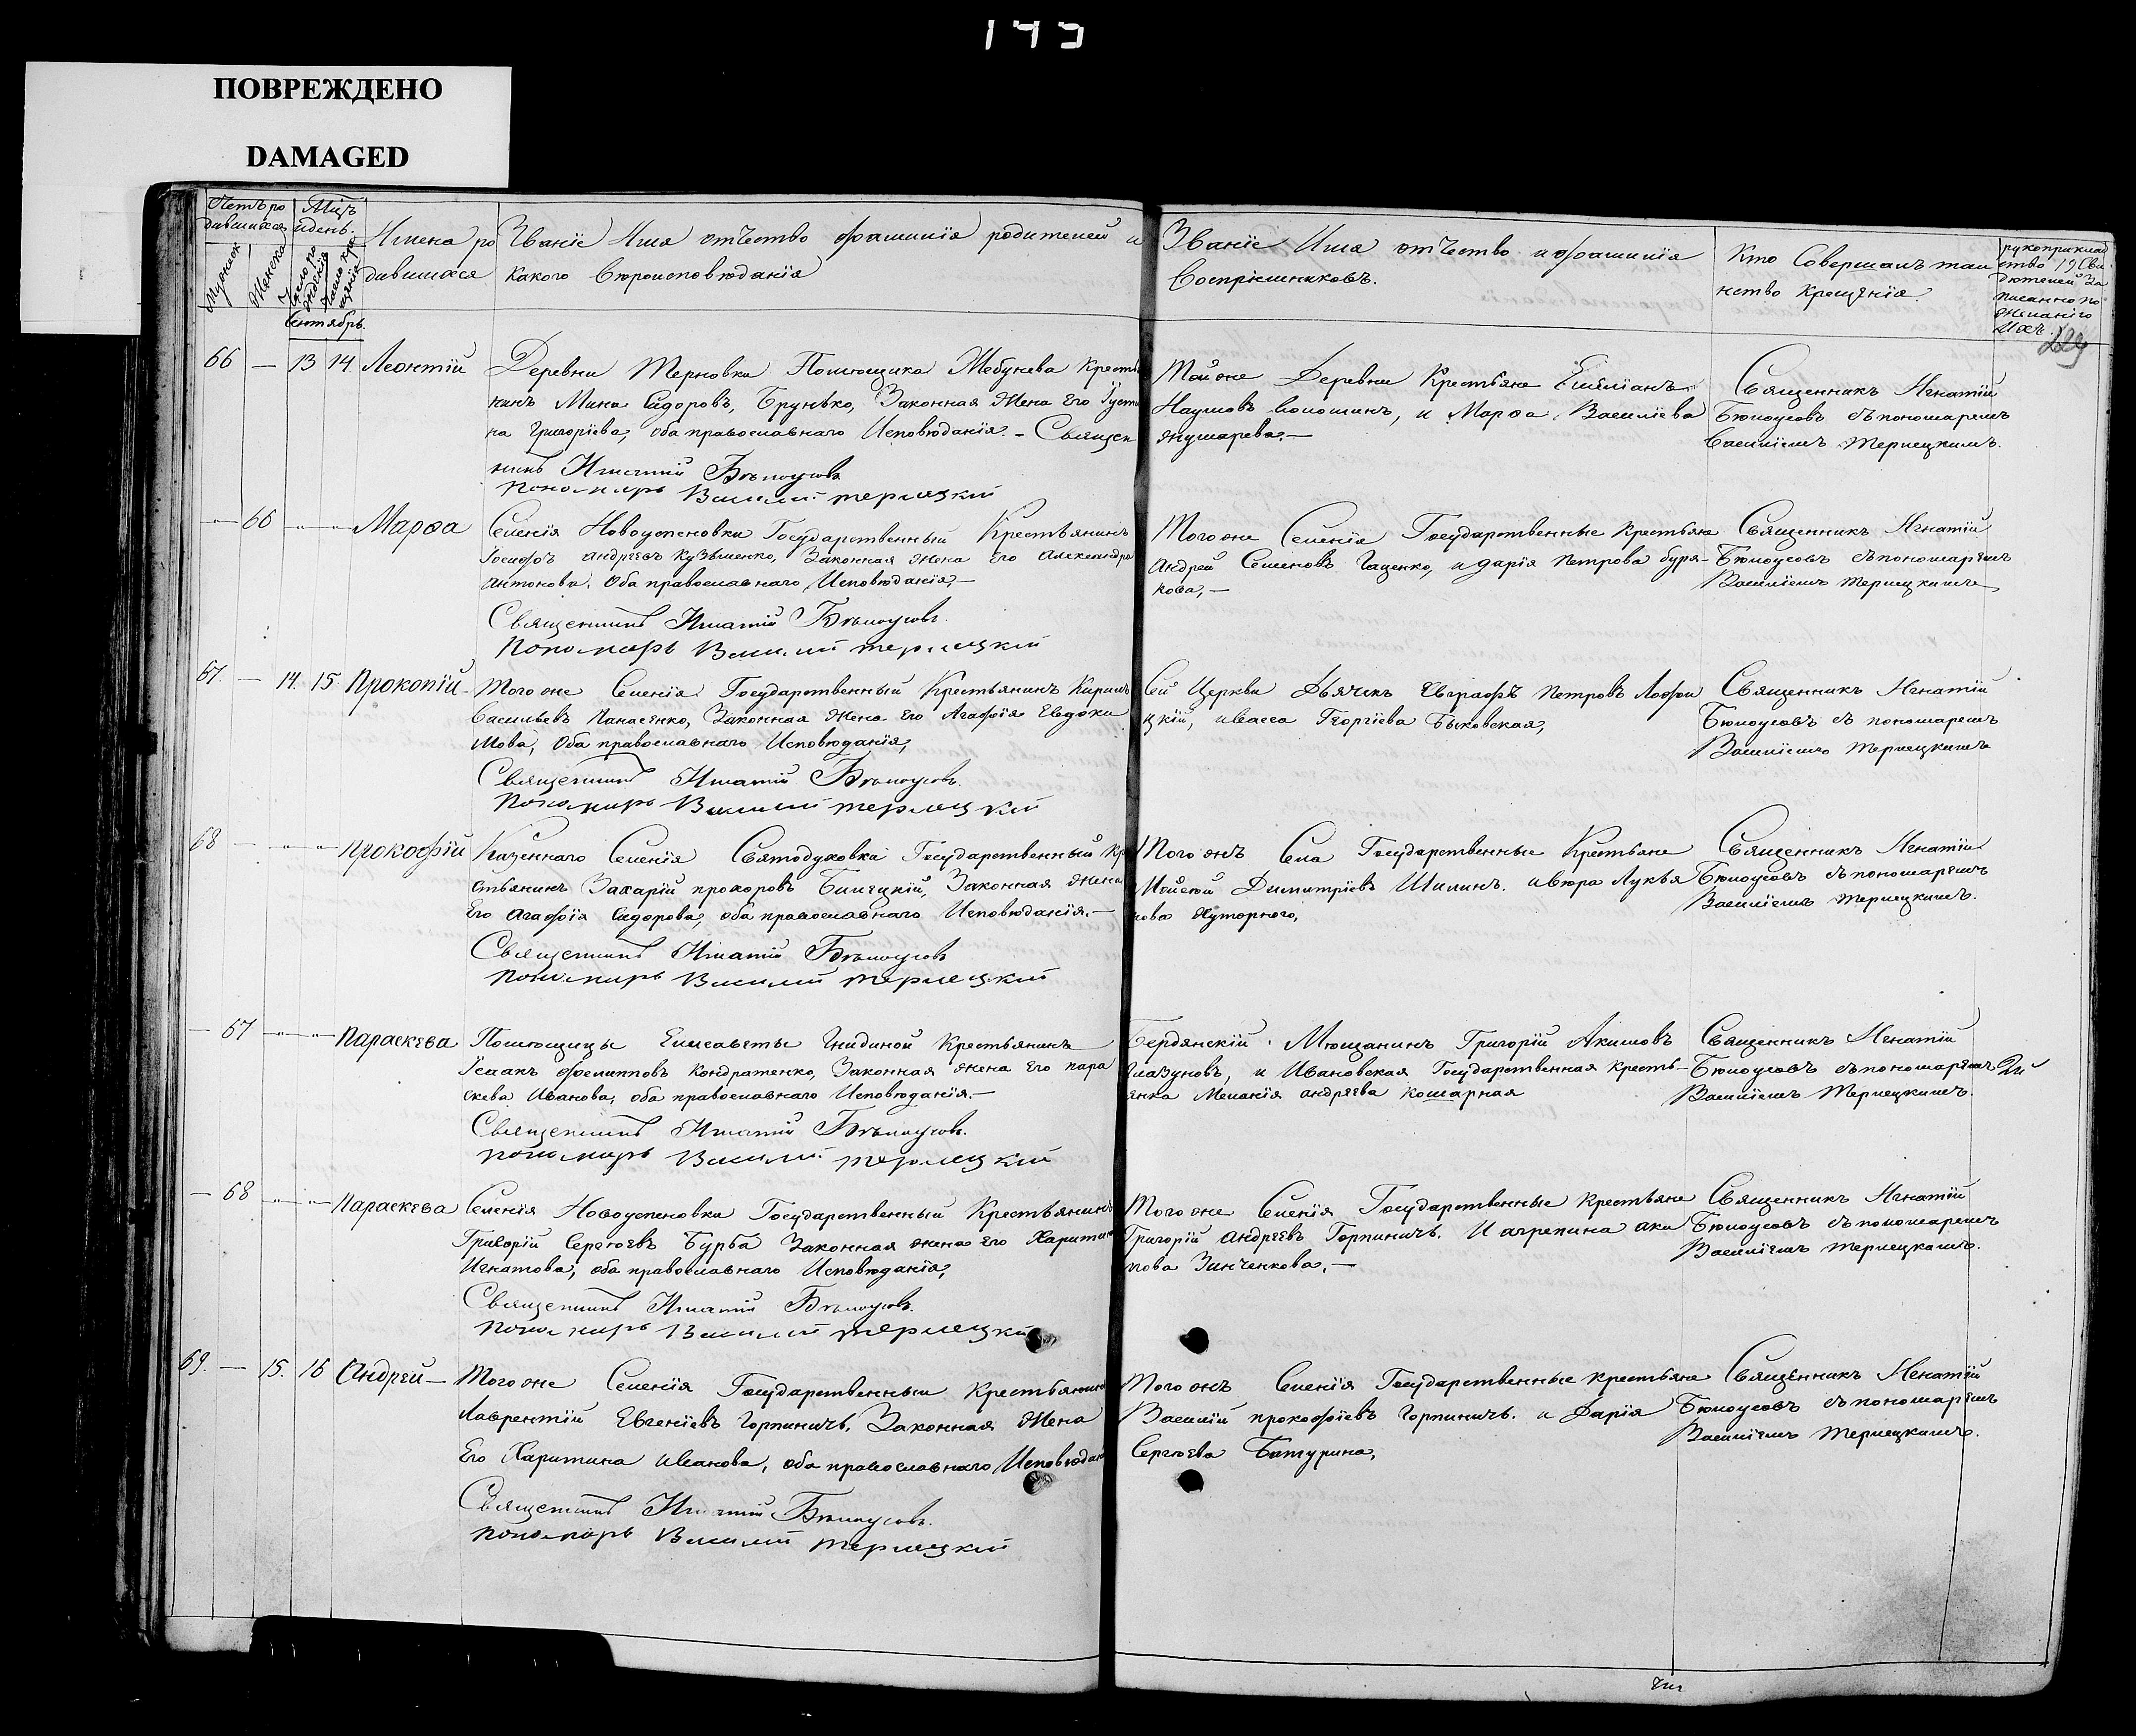 143
ПОВРЕЖДЕНО
DAMAGED
Счетъ ро
дившихся
Мцъ
и день.
Мужеск
Женска
Число ро
жденія
Число кре
щенія
Имена ро
дившихся
Званіе Имя отчество фамилія родителей и
какого вѣроисповѣданія
Званіе Имя отчество и фамилія
Воспріемниковъ.
Кто Совершалъ таи
нство Крещенія.
рукоприклад
ство Сви
дѣтелей За
писанно по
Желанію
Ихъ.
229
Сентябрь.
66 — 13 14 Леонтій
Деревни Терновки Помѣщика Жебунева Кресть
нинъ Мина Сидоровъ, Брунько, Законная Жена Его Густи
на Григоріева, оба православнаго Исповѣданія. - Священ
никъ Игнатій Бѣлоусовъ
пономарь Василій терлецкій
Той же Деревни Крестьяне Емѣліанъ
Наумовъ Волошинъ, и Марѳа Василіева
жушарева. —
Священникъ Игнатій
Бѣлоусовъ съ пономаремъ
Василіемъ Терлецкимъ.
— 66 — „ — „ — Марѳа
Селенія Новоуспеновки Государственный Крестьянинъ
Іосифъ андреевъ Кузьменко, Законная Жена Его Александра
Антонова. Оба православнаго Исповѣданія. —
Священникъ Игнатій Бѣлоусовъ.
Пономарь Василій терлецкій
Того же Селенія Государственные Крестьяне
Андрей Семеновъ Гаценко, и дарія Петрова буря-
кова, —
Священникъ Игнатій
Бѣлоусовъ съ пономаремъ
Василіемъ Терлецкимъ
67. — 14. 15. Прокопій —
Того же Селенія Государственный Крестьянинъ Кирилъ
Васильевъ Панасенко, Законная Жена Его Агафія Евдоки
мова, Оба православнаго Исповѣданія,
Священникъ Игнатій Бѣлоусовъ.
Пономарь Василій терлецкій
Сей Церкви Дьячекъ Евграфъ Петровъ Лофи
цкій, и Васса Георгіева Быковская,
Священникъ Игнатій
Бѣлоусовъ съ пономаремъ
Василіемъ Терлецкимъ
68 — „ — „ — Прокофій
Казеннаго Селенія Святодуховки Государственный Кр
стьянинъ Захарій прохоровъ Билецкій, Законная Жена
Его Агафія Сидорова, оба православнаго Исповѣданія. —
Священникъ Игнатій Бѣлоусовъ
Пономарь Василій терлецкій
Того жъ Села Государственные Крестьяне
Мойсей Димитріевъ Шилинъ. и Вѣра Лукья
нова Хуторного,
Священникъ Игнатій
Бѣлоусовъ съ пономаремъ
Василіемъ терлецкимъ.
— 67 — „ — „ — Параскева
Помѣщицы Елисаветы Гнидиной Крестьянинъ
Ісаакъ филипповъ Кондратенко, Законная жена Его пара
скева Иванова, оба православнаго Исповѣданія. —
Священникъ Игнатій Бѣлоусовъ.
пономарь Василій терлецкій
Бердянскій Мѣщанинъ Григорій Акимовъ
Глазуновъ, и Ивановская Государственная Кресть-
янка Меланія андреева кошарная
Священникъ Игнатій
Бѣлоусовъ съ пономаремъ
Василіемъ Терлецкимъ.
— 68 — „ — „ — Параскева
Селенія Новоуспеновки Государственный Крестьянинъ
Григорій Сергѣевъ Бурба Законная жена Его Харитин
Игнатова, оба православнаго Исповѣданія,
Священникъ Игнатій Бѣлоусовъ.
пономарь Василій терлецкій
Того же Селенія Государственные Крестьяне
Григорій андреевъ Горпиничъ. И агрепина аки
мова Зинченкова, —
Священникъ Игнатій
Бѣлоусовъ съ пономаремъ
Василіемъ терлецкимъ.
69. — 15. 16 Андрей —
Того же Селенія Государственный Крестьянинъ
Лаврентій Евгеніевъ Горпиничъ, Законная Жена
Его Харитина иванова, оба православнаго Исповѣдан
Священникъ Игнатій Бѣлоусовъ.
пономарь Василій терлецкій
Того жъ Селенія Государственные Крестьяне
Василій прокофіевъ Горпиничъ. и Дарія
Сергѣева Батурина,
Священникъ Игнатій
Бѣлоусовъ съ пономаремъ
Василіемъ Терлецкимъ.